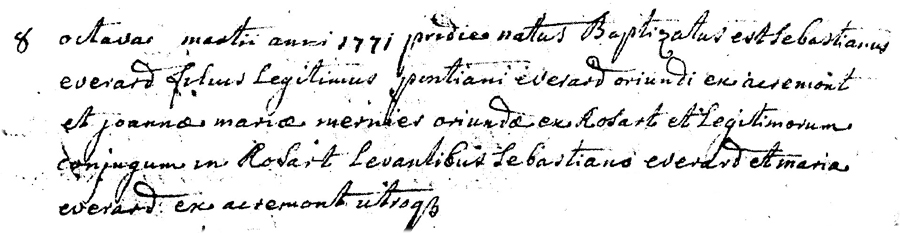 8 octavae martii anni 1771 pridie natus Baptizatus est Sebastianus
everard filius Legitimus pontiani everard oriundi ex acremont
et joannæ mariæ mernier oriundæ ex Rosart et Legitimorum
conjugum in Rosart Levantibus Sebastiano everard et maria
everard ex acremont utroqß